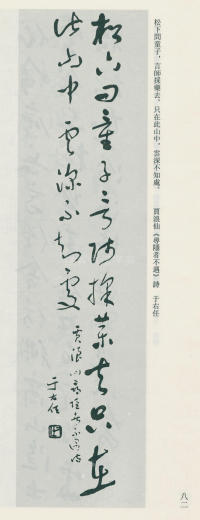 松下問童子，言師採藥去。只在此山中，雲深不知處。　賈浪仙《尋隱者不遇》詩　于右任
松下問童子言師採藥去只在
此山中雲深不知處
賈浪仙尋隱者不遇詩
于右任
八二